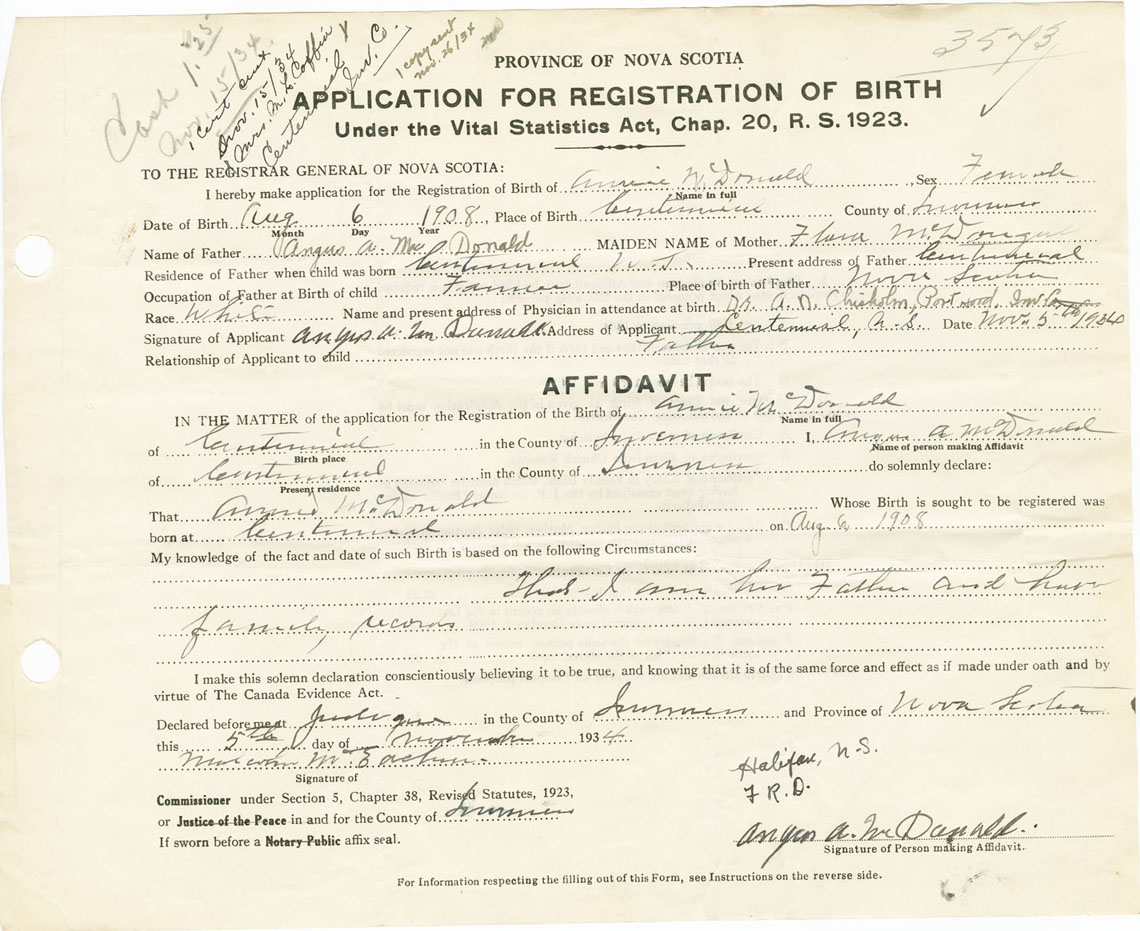 Cash 1.25
Nov. 15/34
1 cert sent
Nov. 15/34
Mrs. M. L. Coffin
Centennial
Inv. Co.
1 copy sent
Nov. 26/34
3573
PROVINCE OF NOVA SCOTIA
APPLICATION FOR REGISTRATION OF BIRTH
Under the Vital Statistics Act, Chap. 20, R. S. 1923.
TO THE REGISTRAR GENERAL OF NOVA SCOTIA:
I hereby make application for the Registration of Birth of Annie McDonald, Sex Female
Name in full
Date of Birth Aug 6 1908, Place of Birth Centennial County of Inverness
Month Day Year
Name of Father Angus A. McDonald MAIDEN NAME of Mother Flora McDougall
Residence of Father when child was born Centennial N.S. Present address of Father Centennial
Occupation of Father at Birth of child Farmer Place of birth of Father Nova Scotia
Race White Name and present address of Physician in attendance at birth Dr. A. N. Chisholm, Port Hood, Inv Co
Signature of Applicant Angus A. McDonald Address of Applicant Centennial, N.S. Date Nov. 5th 1934
Relationship of Applicant to child Father
AFFIDAVIT
IN THE MATTER of the application for the Registration of the Birth of Annie McDonald
Name in full
of Centennial in the County of Inverness I, Angus A McDonald
Birth place Name of person making Affidavit
of Centennial in the County of Inverness do solemnly declare:
Present residence
That Annie McDonald Whose Birth is sought to be registered was
born at Centennial on Aug 6 1908
My knowledge of the fact and date of such Birth is based on the following Circumstances:
That I am her Father and have
family records
I make this solemn declaration conscientiously believing it to be true, and knowing that it is of the same force and effect as if made under oath and by
virtue of The Canada Evidence Act.
Declared before me at Judique in the County of Inverness and Province of Nova Scotia
this 5th day of November 1934
Malcolm McEachern
Signature of
Commissioner under Section 5, Chapter 38, Revised Statutes, 1923,
or Justice of the Peace in and for the County of Inverness
If sworn before a Notary Public affix seal.
Halifax, N.S.
F.R.D.
Angus A. McDonald.
Signature of Person making Affidavit.
For Information respecting the filling out of this Form, see Instructions on the reverse side.